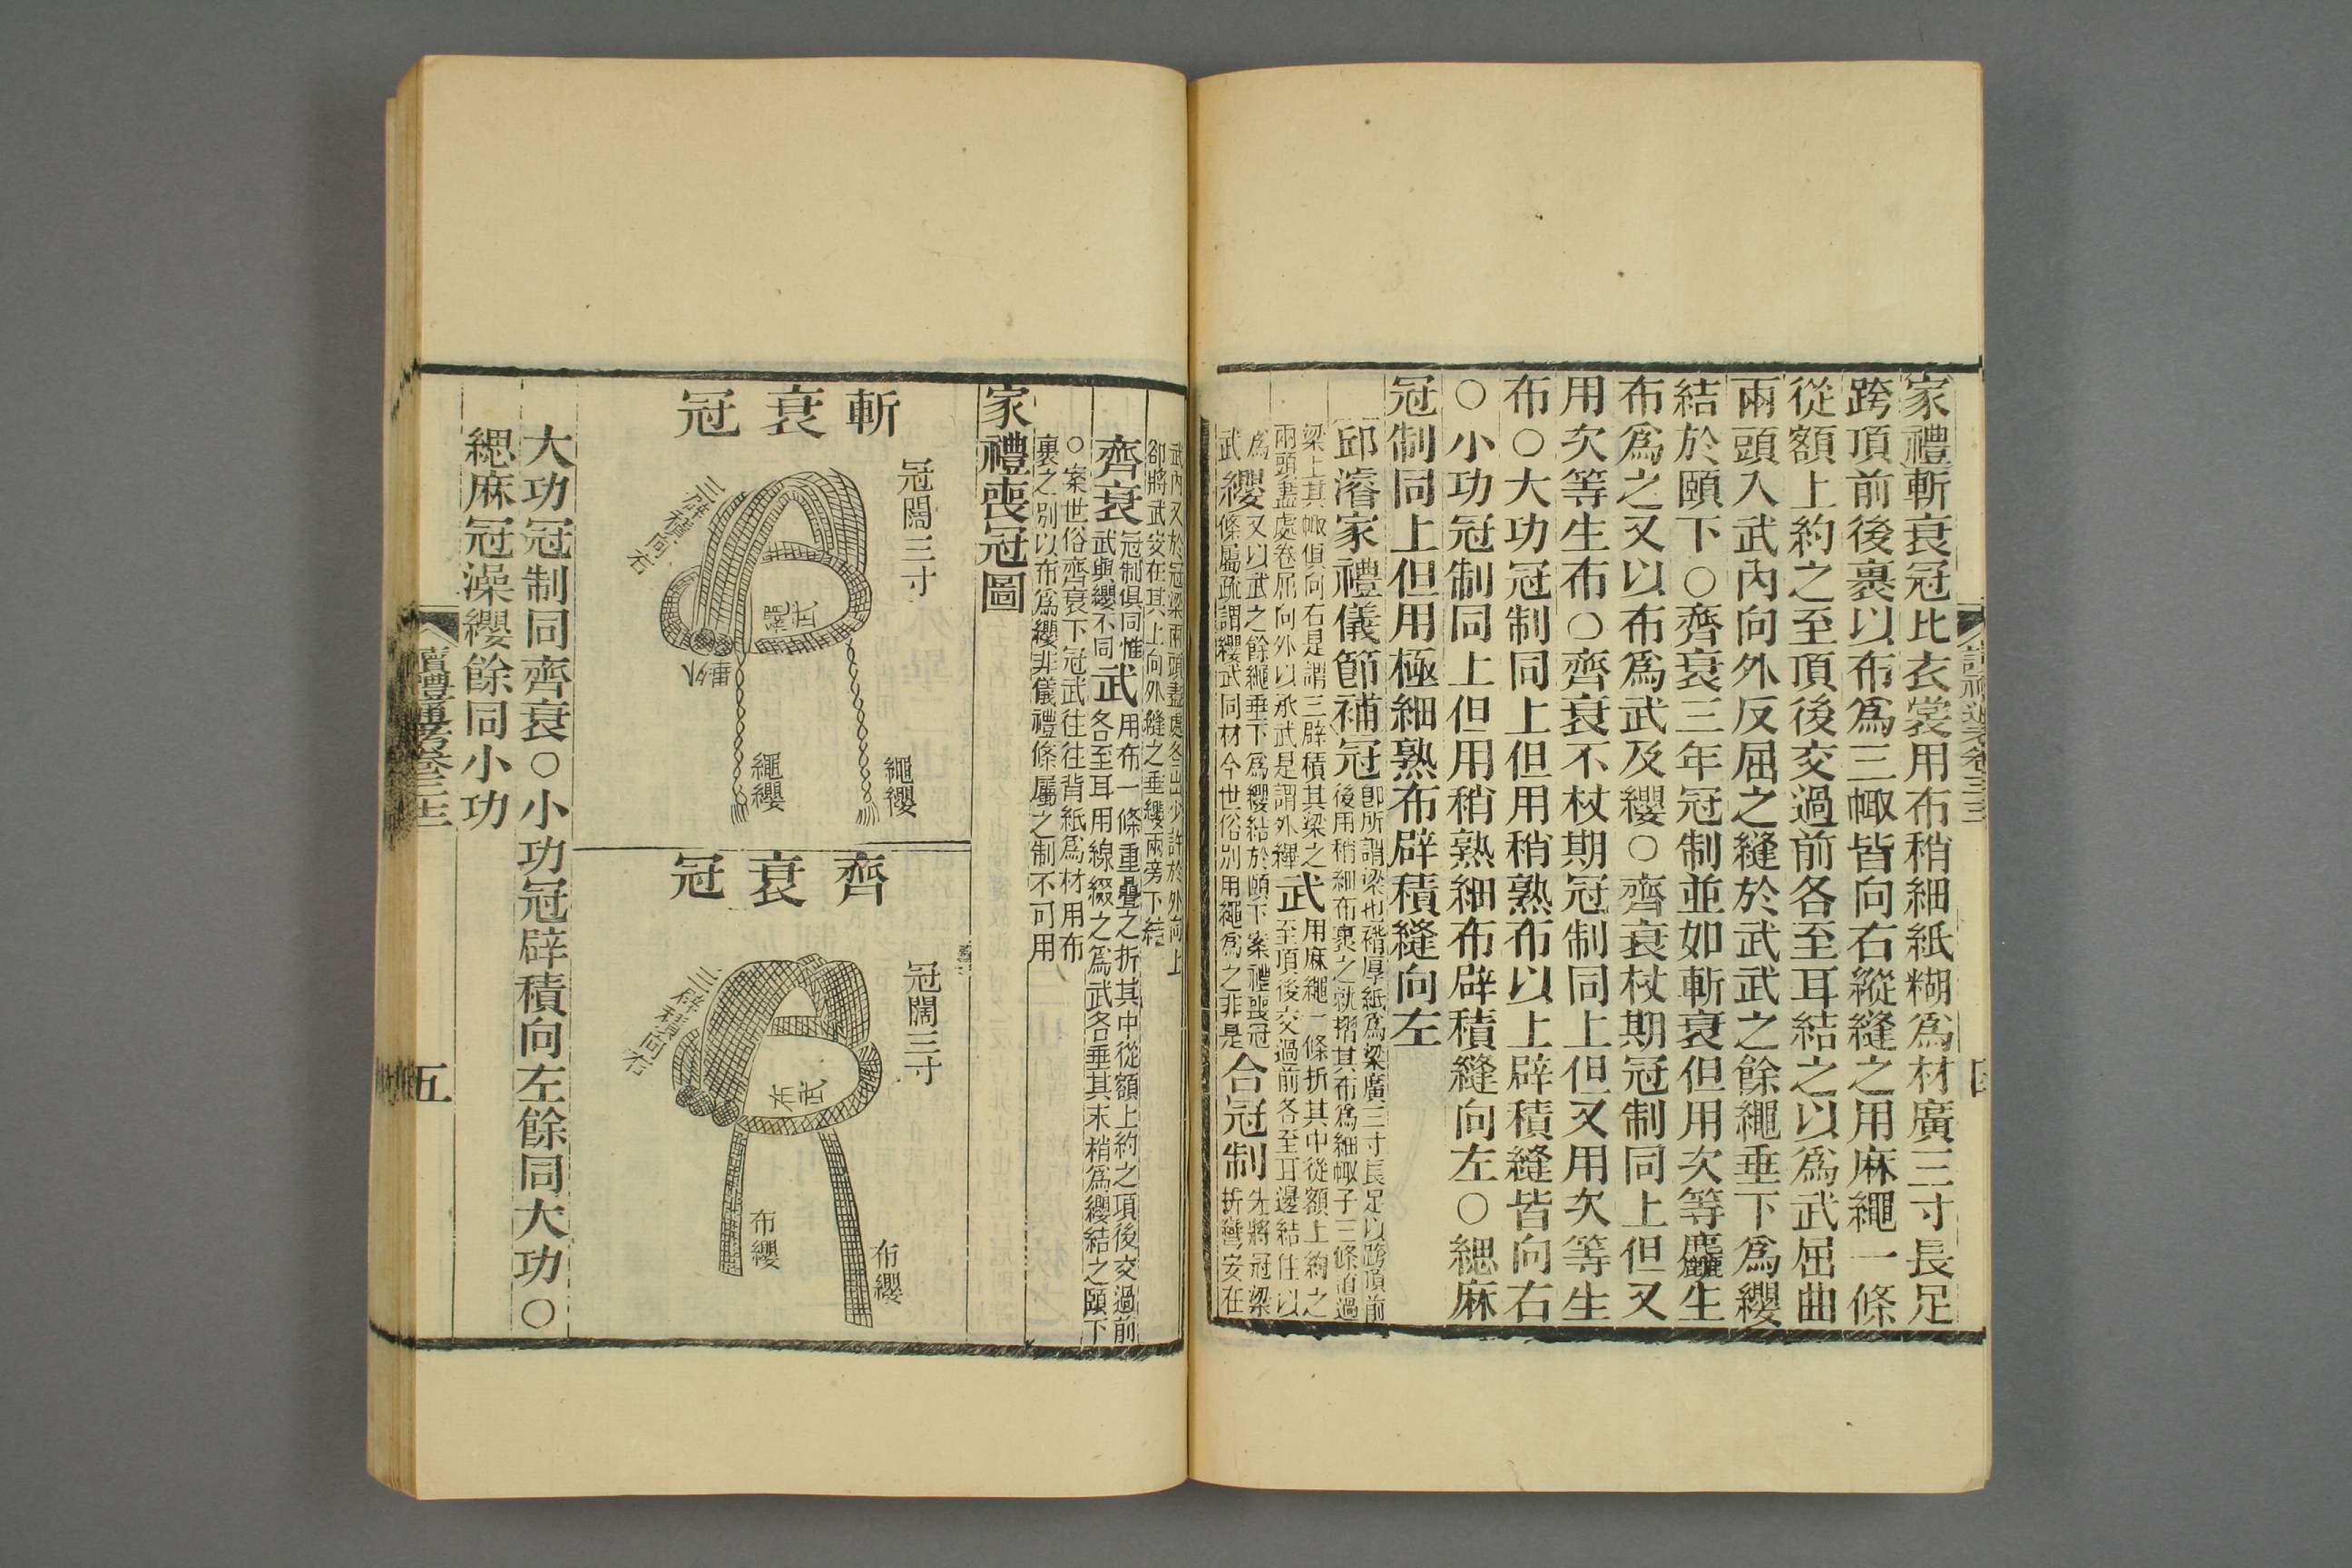 家禮斬衰冠比衣裳用布稍細紙糊爲材廣三寸長足
跨項前後裹以布爲三㡇皆向右縱縫之用麻繩一條
從額上約之至頂後交過前各至耳結之以爲武屈曲
兩頭入武內向外反屈之縫於武武之餘繩垂下爲纓
結於頤下○齊衰三年冠制並如斬衰但用次等麄生
布爲之又以布爲武及纓○齊衰杖期冠制同上但又
用次等生布○齊衰不杖期冠制同上但又用次等生
布○大功冠制同上但用稍熟布以上辟積縫皆向右
○小功冠制同上但用稍熟細布辟積縫向左○緦麻
冠制同上但用極細熟布辟積縫向左
邱濬家禮儀節補冠卽所謂梁也褙厚紙爲梁廣三寸長足以跨頂前
後用稍細布裹之就摺其布爲細㡇子三條直過
梁上其㡇俱向右是謂三辟積其梁之
兩頭盡處卷屈向外以承武是謂外縪武用麻繩一條折其中從額上約之
至項後交過前各至耳邊結住以
爲纓又以武之餘繩垂下爲纓結於頤下案禮喪冠
武條屬疏謂纓武同材今世俗別用繩爲之非是合冠制先將冠梁
折彎安在
武內又於冠梁兩頭盡處各出少許於外向上
卻將武安在其上向外縫之垂纓兩旁下結
齊衰冠制俱同惟
武與纓不同武用布一條重疊之折其中從額上約之項後交過前
各至耳用線綴之爲武各垂其末稍爲纓結之頤下
○案世俗齊衰下冠武往往背紙爲材用布
裹之別以布爲纓非儀禮條屬之制不可用
家禮喪冠圖
斬衰冠
冠闊三寸
三辟積向右
武
繩
外畢
繩纓
繩纓
齊衰冠
冠闊三寸
三辟積向右
武
布
布纓
布纓
大功冠制同齊衰○小功冠辟積向左餘同大功○
緦麻冠澡纓餘同小功
讀禮通考卷三十三
五